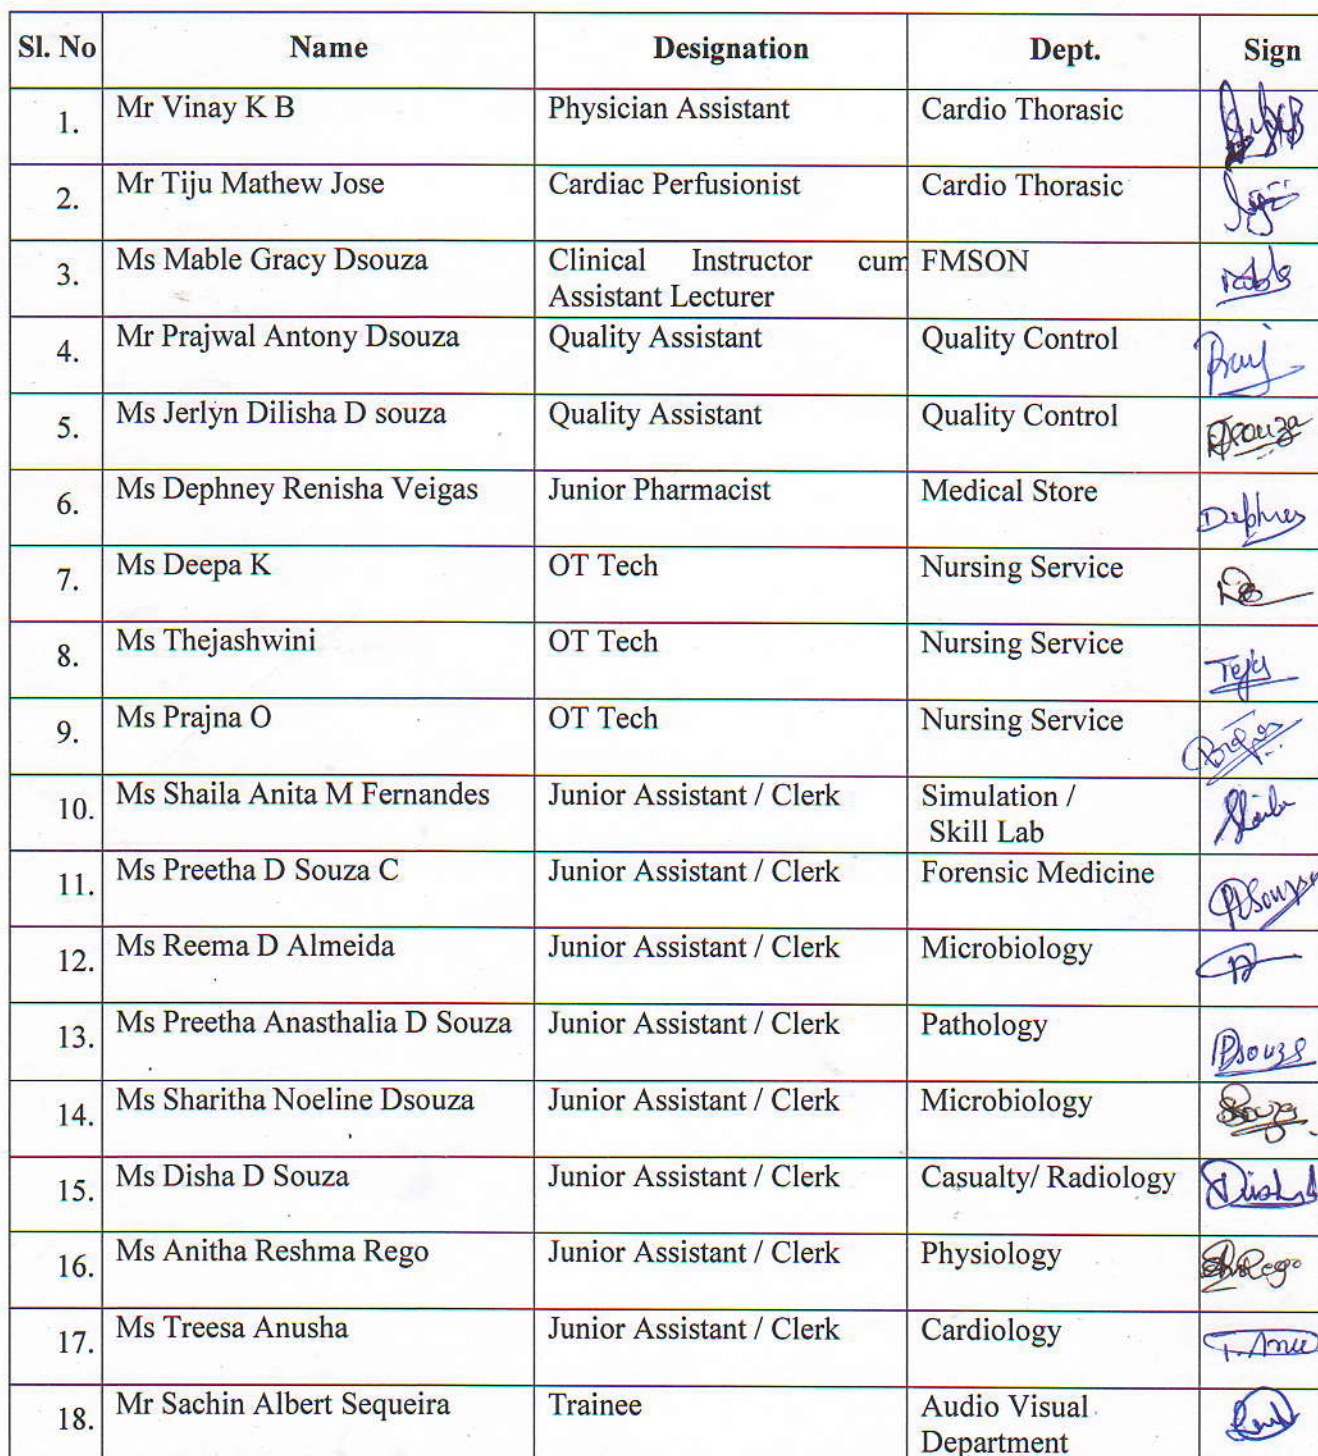 Sl. No Name Designation Dept. Sign
1. Mr Vinay K B Physician Assistant Cardio Thorasic
2. Mr Tiju Mathew Jose Cardiac Perfusionist Cardio Thorasic
3. Ms Mable Gracy Dsouza Clinical Instructor cum FMSON
Assistant Lecturer
4. Mr Prajwal Antony Dsouza Quality Assistant Quality Control
5. Ms Jerlyn Dilisha D souza Quality Assistant Quality Control
6. Ms Dephney Renisha Veigas Junior Pharmacist Medical Store
7. Ms Deepa K OT Tech Nursing Service
8. Ms Thejashwini OT Tech Nursing Service
9. Ms Prajna O OT Tech Nursing Service
10. Ms Shaila Anita M Fernandes Junior Assistant / Clerk Simulation /
Skill Lab
11. Ms Preetha D Souza C Junior Assistant / Clerk Forensic Medicine
12. Ms Reema D Almeida Junior Assistant / Clerk Microbiology
13. Ms Preetha Anasthalia D Souza Junior Assistant / Clerk Pathology
14. Ms Sharitha Noeline Dsouza Junior Assistant / Clerk Microbiology
15. Ms Disha D Souza Junior Assistant / Clerk Casualty/ Radiology
16. Ms Anitha Reshma Rego Junior Assistant / Clerk Physiology
17. Ms Treesa Anusha Junior Assistant / Clerk Cardiology
18. Mr Sachin Albert Sequeira Trainee Audio Visual
Department